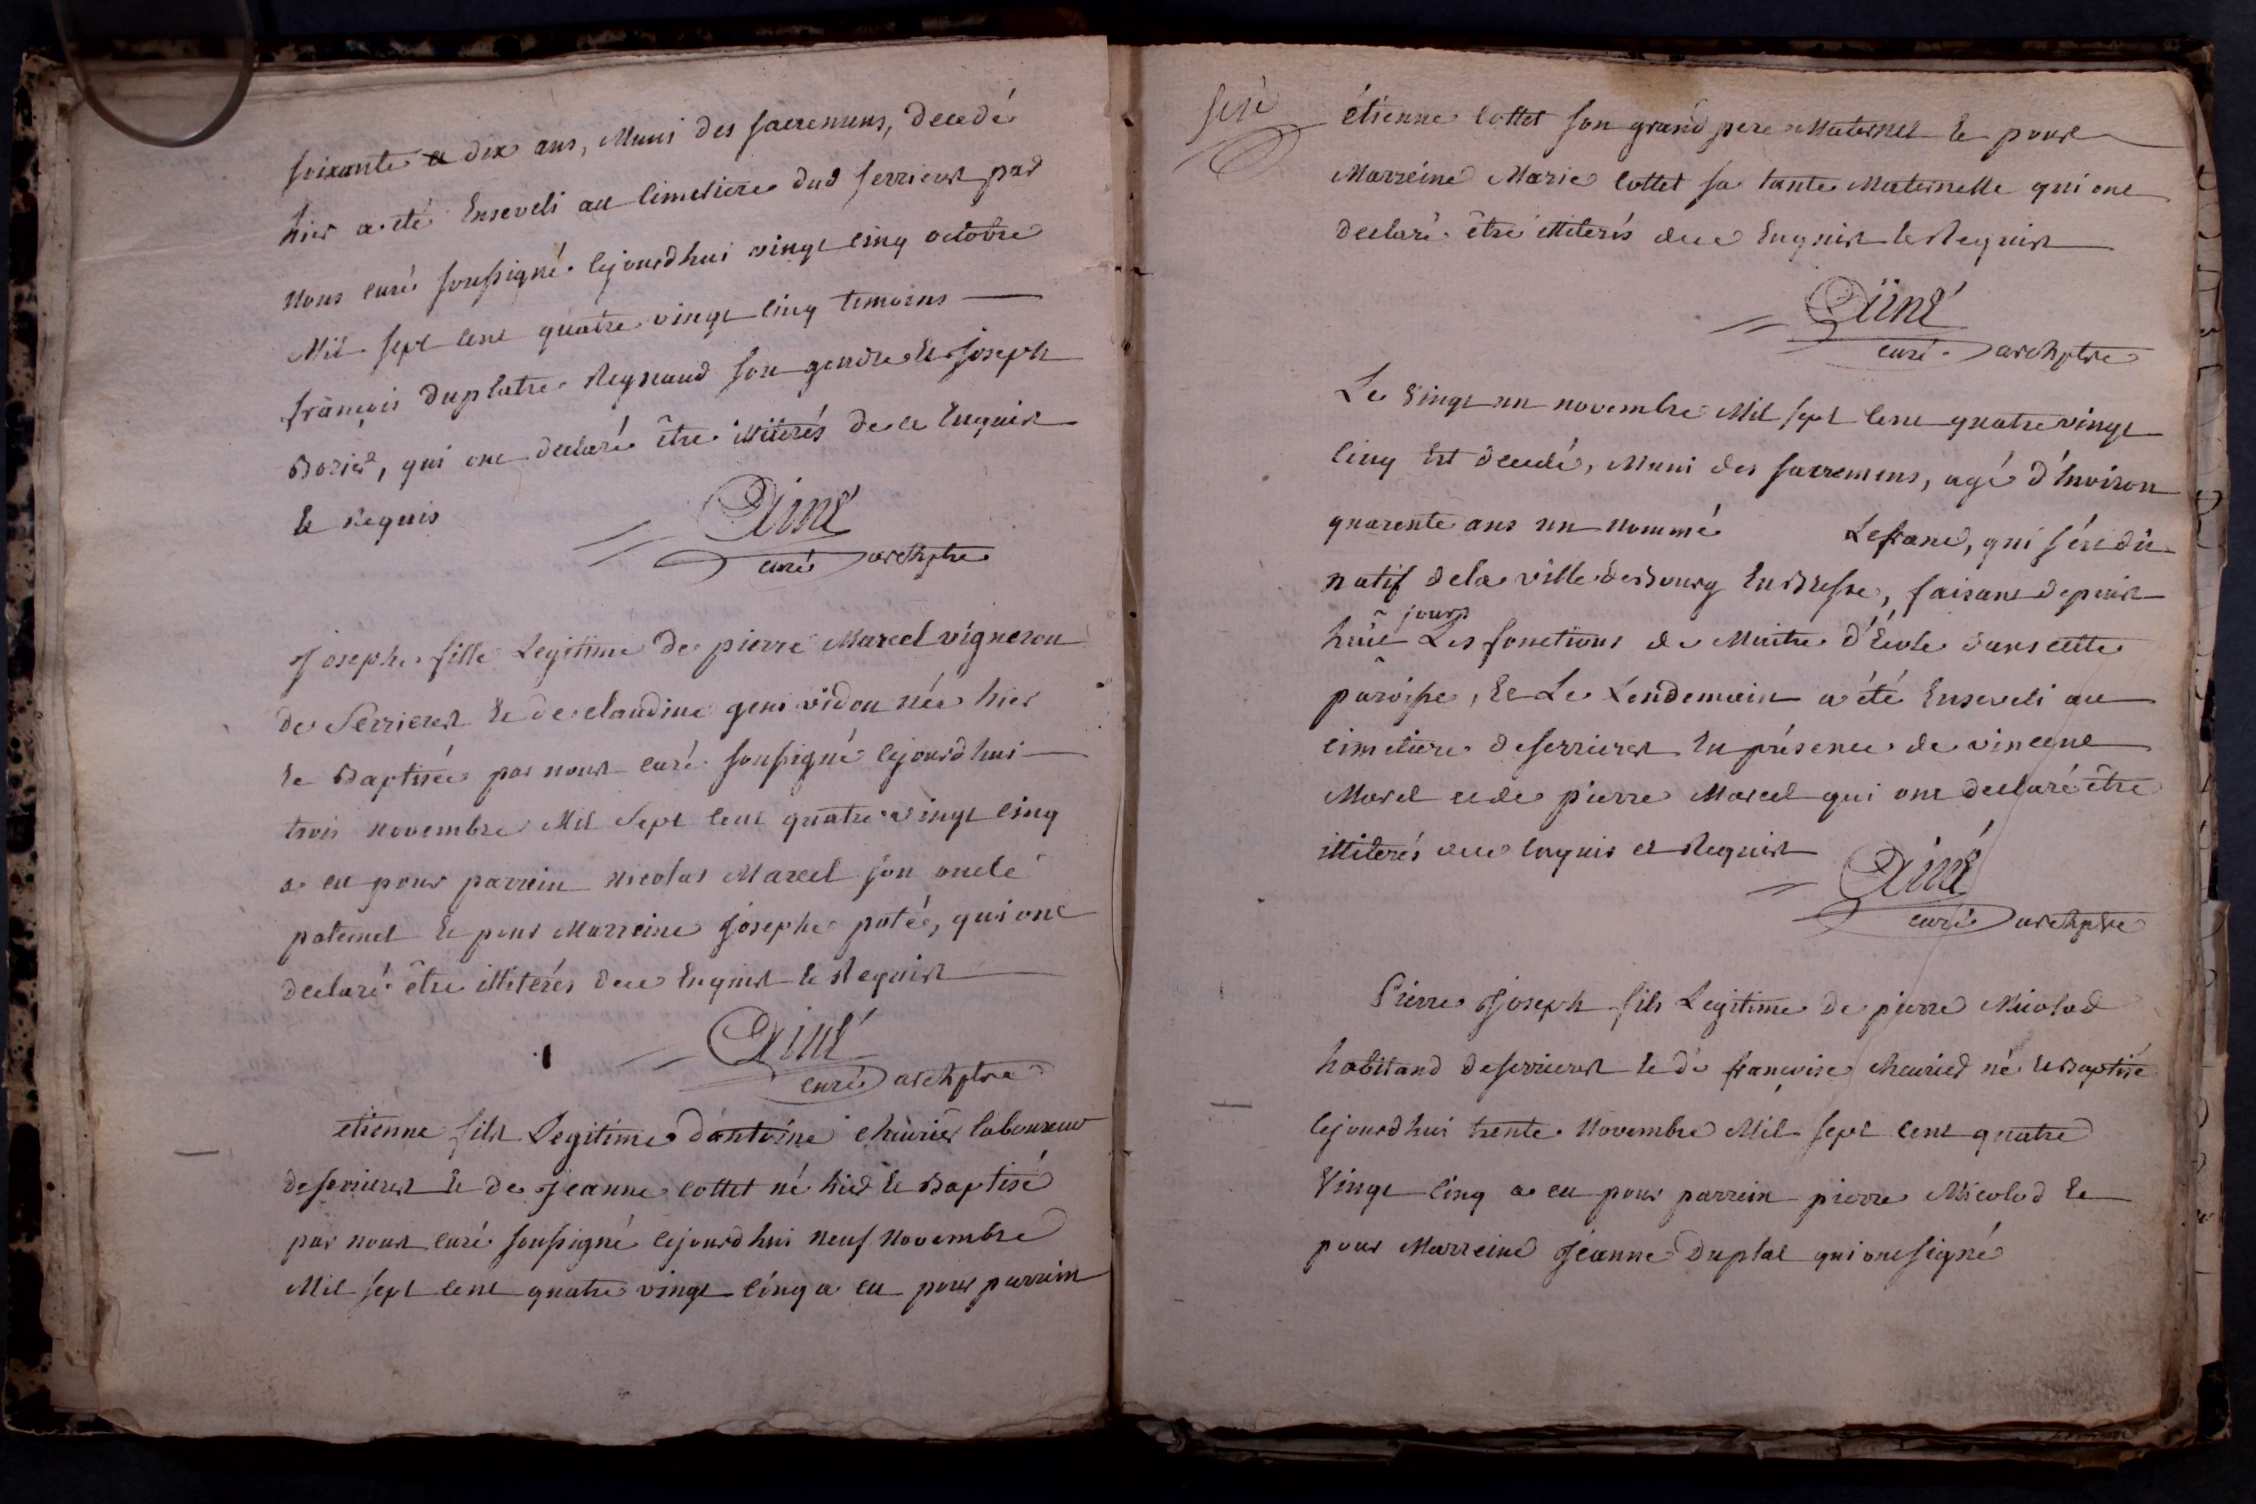 soixante et dix ans, Muni des sacremens, decedé
hier a été Enseveli au Cimetiere dud serrieres par
Nous curé soussigné cejourdhui vingt cinq octobre
Mil sept cent quatre vingt cinq temoins
françois duplatre Reynaud son gendre et joseph
Borier, qui ont declaré être illiterés de ce Enquis
et Requis
curé archptre
Josephe fille Legitime de pierre Marcel vigneron
de Serrieres et de claudine genividon née hier
et Baptisée par nous curé soussigné cejourdhui
trois novembre Mil Sept Cent quatre vingt cinq
a eu pour parrein nicolas Marcel son oncle
paternel et pour Marreine josephe paté, qui ont
declaré être illiterés de ce Enquis et Requis
curé archptre
etienne fils Legitime dantoine cheurier laboureur
de serrieres et de jeanne cottet né hier et Baptisé
par nous curé soussigné cejourdhui neuf novembre
Mil sept cent quatre vingt cinq a eu pour parrein
étienne cottet son grand pere Maternel et pour
Marreine Marie cottet sa tante Maternelle qui ont
declaré être illiterés de ce Enquis et Requis
curé archptre
Le vingt un novembre Mil sept Cent quatre vingt
Cinq Est decedé, Muni des sacremens, agé d'Environ
quarente ans un nommé Lefranc, qui s'est dit
natif de la ville de Bourg En Bresse, faisant depuis
huit jours Les fonctions de Maitre d'Ecole dans cette
paroisse, Et Le Lendemain a été Enseveli au
cimetiere de serrieres En présence de vincent
Morel et de pierre Marcel qui ont declaré être
illiterés de ce Enquis et Requis
curé archptre
Pierre Joseph fils Legitime de pierre Nicolod
habitand de serrieres et de françoise cheurier né et Baptisé
cejourdhui trente Novembre Mil sept Cent quatre
Vingt Cinq a eu pour parrein pierre Nicolod et
pour Marreine jeanne Duplat qui ont signé